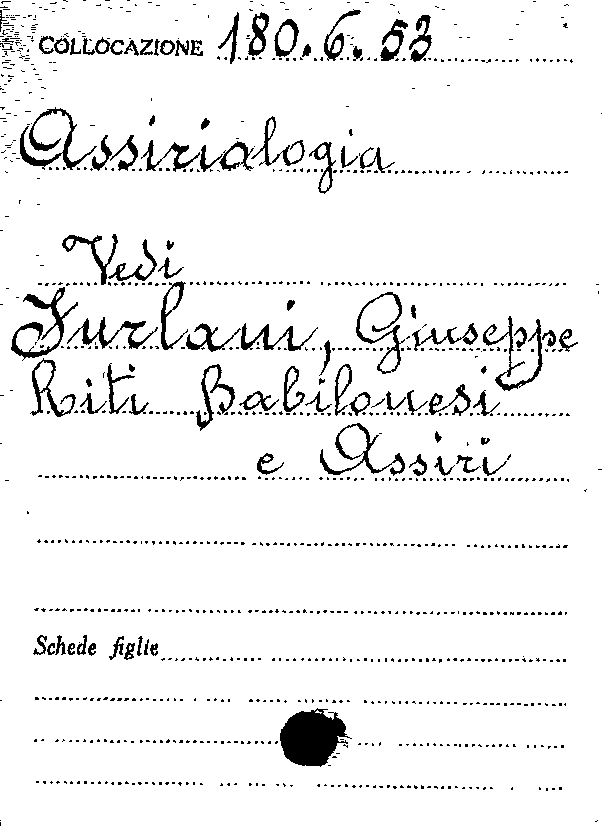 COLLOCAZIONE 180.6.53
Assirialogia
Vedi
Furlani, Giuseppe
Riti Babilonesi
e Assiri
Schede figlie